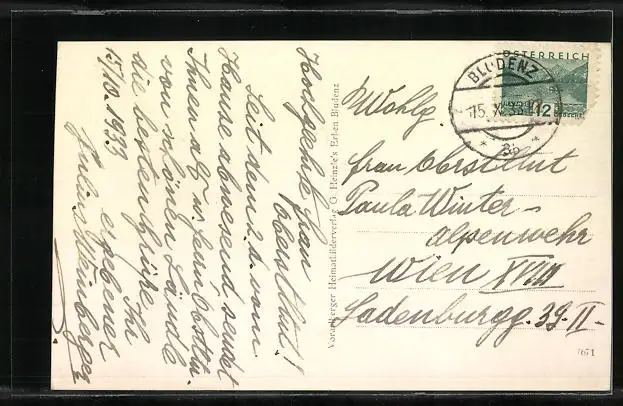 Hochgeehrte Frau
Oberstltnt!
Seit dem 2. d. vom
Hause abwesend, sendet
Ihnen als w. Frau Obsttn.
von schönen Ländle
die besten Grüße
Ihr
ergebener
15/10. 1933
Vorarlberger Heimatbilderverlag O. Heinzle's Erben Bludenz
ÖSTERREICH
12
GROSCHEN
BLUDENZ
15. X. 33
* 3b *
Wohlg.
Frau Oberstltnt
Paula Winter-
alpenwehr
Wien XVIII
Ladenburgg. 39-II-
7671